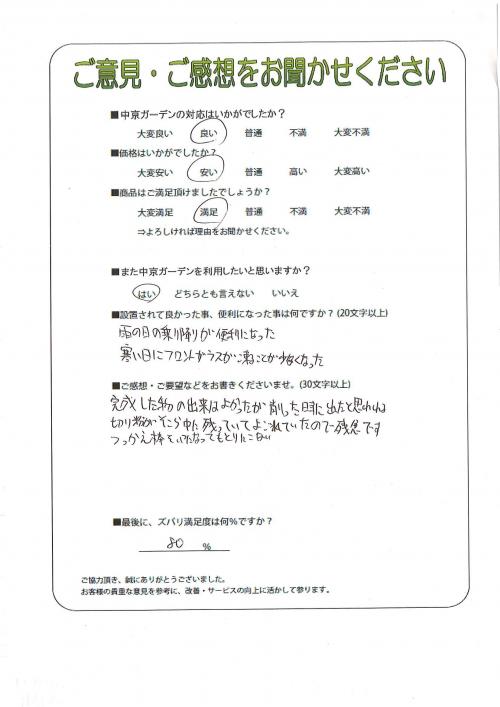 ご意見・ご感想をお聞かせください
■中京ガーデンの対応はいかがでしたか？
大変良い 良い 普通 不満 大変不満
■価格はいかがでしたか？
大変安い 安い 普通 高い 大変高い
■商品はご満足頂けましたでしょうか？
大変満足 満足 普通 不満 大変不満
⇒よろしければ理由をお聞かせください。
■また中京ガーデンを利用したいと思いますか？
はい どちらとも言えない いいえ
■設置されて良かった事、便利になった事は何ですか？(20文字以上)
雨の日の乗り降りが便利になった
寒い日にフロントガラスが凍ることが少なくなった
■ご感想・ご要望などをお書きくださいませ。(30文字以上)
完成した物の出来はよかったが削った時に出たと思われる
切り粉がそこら中に残っていてよごれていたので残念です
つっかえ棒をいたなってもとりにこない
■最後に、ズバリ満足度は何%ですか？
80 %
ご協力頂き、誠にありがとうございました。
お客様の貴重な意見を参考に、改善・サービスの向上に活かして参ります。